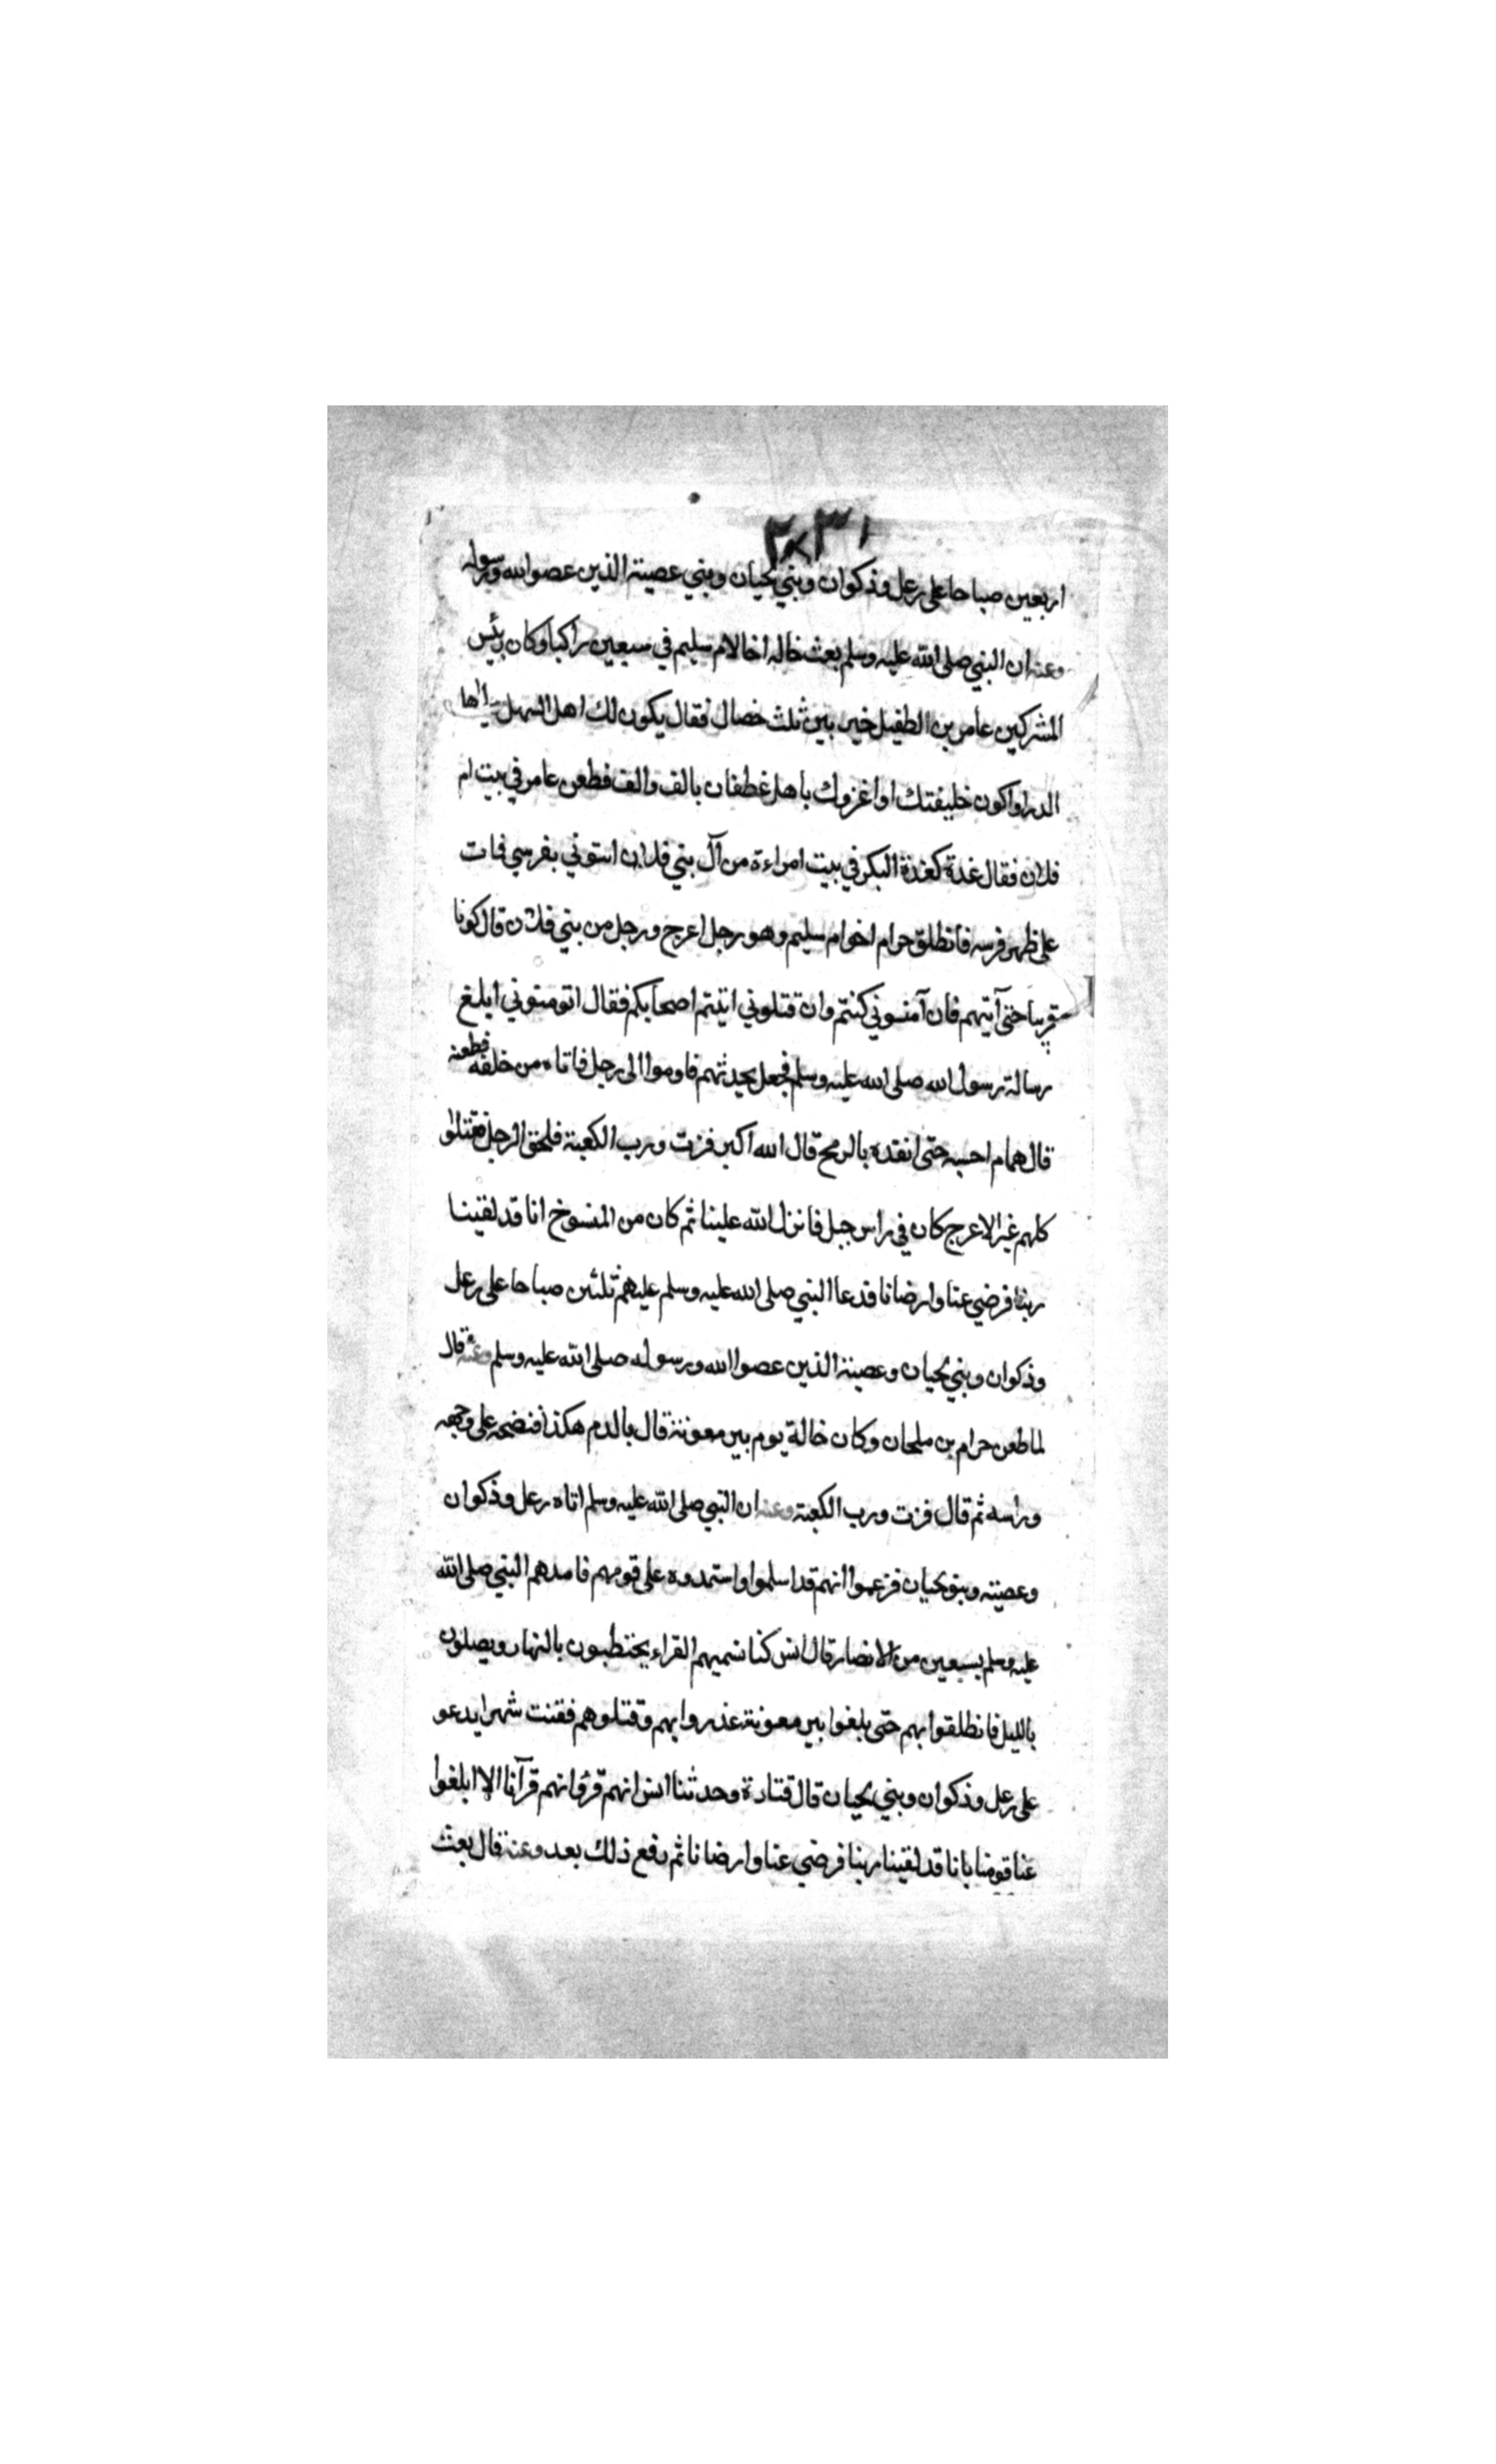 اربعين صباحا على رعل وذكوان وبني لحيان وبني عصية الذين عصوا الله ورسوله
وعنه ان النبي صلى الله عليه وسلم بعث خاله اخا لام سليم في سبعين راكبا وكان رئيس
المشركين عامر بن الطفيل خير بين ثلث خصال فقال يكون لك اهل السهل ولي اهل
المدر او اكون خليفتك او اغزوك باهل غطفان بالف والف فطعن عامر في بيت ام
فلان فقال غدة كغدة البكر في بيت امراءة من آل بني فلان ائتوني بفرسي فمات
على ظهر فرسه فانطلق حرام اخو ام سليم وهو رجل اعرج ورجل من بني فلان قال كونا
قريبا حتى آتيهم فان آمنوني كنتم وان قتلوني اتيتم اصحابكم فقال اتومنوني ابلغ
رسالة رسول الله صلى الله عليه وسلم فجعل يحدثهم فاوموا الى رجل فاتاه من خلفه فطعنه
قال همام احسبه حتى انفذه بالرمح قال الله اكبر فزت ورب الكعبة فلحق الرجل فقتلوا
كلهم غير الاعرج كان في راس جبل فانزل الله علينا ثم كان من المنسوخ انا قد لقينا
ربنا فرضي عنا وارضانا فدعا النبي صلى الله عليه وسلم عليهم ثلثين صباحا على رعل
وذكوان وبني لحيان وعصية الذين عصوا الله ورسوله صلى الله عليه وسلم وعنه قال
لما طعن حرام بن ملحان وكان خالة يوم بير معونة قال بالدم هكذا فنضحه على وجهه
وراسه ثم قال فزت ورب الكعبة وعنه ان النبي صلى الله عليه وسلم اتاه رعل وذكوان
وعصية وبنو لحيان فزعموا انهم قد اسلموا واستمدوه على قومهم فامدهم النبي صلى الله
عليه وسلم بسبعين من الانصار قال انس كنا نسميهم القراء يحتطبون بالنهار ويصلون
بالليل فانطلقوا بهم حتى بلغوا بير معونة غدروا بهم وقتلوهم فقنت شهرا يدعو
على رعل وذكوان وبني لحيان قال قتادة وحدثنا انس انهم قرؤا بهم قرآنا الا ابلغوا
عنا قومنا بانا قد لقينا ربنا فرضي عنا وارضانا ثم رفع ذلك بعد وعنه قال بعث